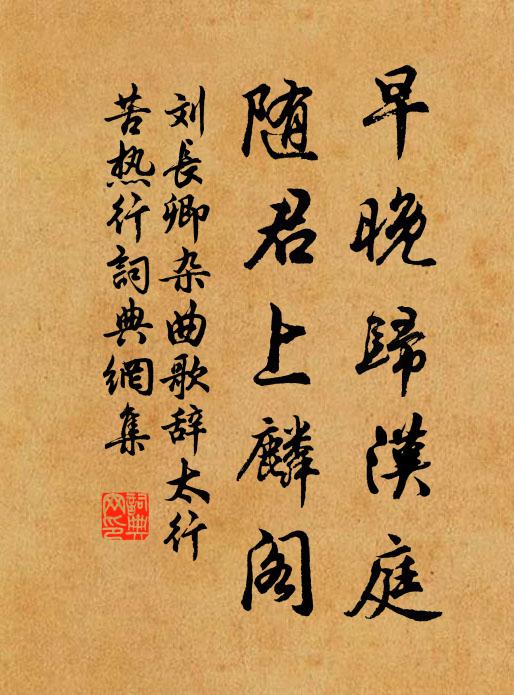 早晚歸漢庭
随君上麟阁
刘長卿杂曲歌辞太行
苦热行詞典網集
詞典網印